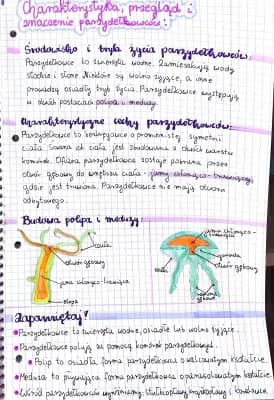 Charakterystyka, przegląd i
znaczenie parzydełkowców!
Środowisko i tryb życia parzydełkowców:
Parzydełkowce to zwierzęta wodne. Zamieszkują wody
słodkie i słone. Niektóre są wolno żyjące, a inne
prowadzą osiadły tryb życia. Parzydełkowce występują
w dwóch postaciach: polipa i meduzy.
Charakterystyczne cechy parzydełkowców:
Parzydełkowce to bezkręgowce o promienistej symetrii
ciała. Ściana ich ciała jest zbudowana z dwóch warstw
komórek. Ofiara parzydełkowca zostaje pobrana przez
otwór gębowy do wnętrza ciała - jamy chłonąco-trawiącej,
gdzie jest trawiona. Parzydełkowce nie mają otworu
odbytowego.
Budowa polipa i meduzy:
czułki
otwór gębowy
jama chłonąco-trawiąca
stopa
jama chłonąco-
trawiąca
otwór
gębowy
Zapamiętaj!
Parzydełkowce to zwierzęta wodne, osiadłe lub wolno żyjące.
Parzydełkowce polują za pomocą komórek parzydełkowych.
Polip to osiadła forma parzydełkowca o walcowatym kształcie.
Meduza to pływająca forma parzydełkowca o parasolowatym kształcie.
Wśród parzydełkowców wyróżniamy: stułbiopławy, krążkopławy i koralowce.